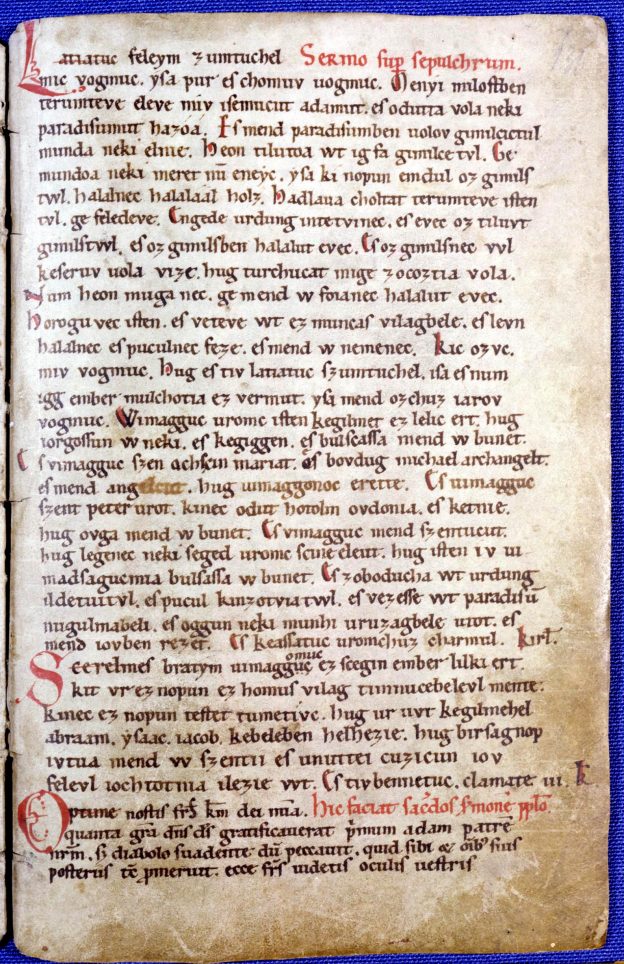 Latiatuc feleym zumtuchel Sermo sup sepulchrum.
mic vogmuc. ysa pur es chomuv uogmuc. Menyi milostben
terumteve eleve miv isemucut adamut. es odutta vola neki
paradisumut hazoa. Es mend paradisumben uolov gimilcictul
munda neki elnie. Heon tilutoa wt ig fa gimilce tvl. Ge
mundoa neki meret nū eneyc. ysa ki nopun emdul oz gimils
twl. halalnec halalaal holz. Hadlaua choltat terumteve isten
tvl. ge feledeve. Engede urdung intetvinec. es evec oz tiluvt
gimilstwl. es oz gimilsben halalut evec. Es oz gimilsnec vvl
keseruv uola vize. hug turchucat mige zocoztia vola.
Num heon muga nec. ge mend w foianec halalut evec.
Horogu vec isten. es veteve wt ez muncas vilagbele. es levn
halalnec es puculnec feze. es mend w nemenec. Kic ozvc.
miv vogmuc. Hug es tiv latiatuc szumtuchel. isa es num
igg ember mulchotia ez vermut. ysa mend ozchuz iarov
vogmuc. Wimagguc uromc isten kegilmet ez lelic ert. hug
iorgossun w neki. es kegiggen. es bulsassa mend w bunet.
Es vimagguc szen achscin mariat. es bovdug michael archangelt.
es mend angelcut. hug uimaggonoc erette. Es uimagguc
szent peter urot. kinec odut hotolm ovdonia. es ketnie.
hug ovga mend w bunet. Es vimagguc mend szentucut.
hug legenec neki seged uromc scine eleut. hug isten iv ui
madsagucmia bulsassa w bunet. Es zoboducha wt urdung
ildetuitvl. es pucul kinzotviatwl. es vezesse wt paradisū
nugulmabeli. es oggun neki munhi uruzagbele utot. es
mend iovben rezet. Es keassatuc uromchuz charmul. kirl.
Scerelmes bratym uimagguc omuc ez scegin ember lilki ert.
kit vr ez nopun ez homus vilag timnucebelevl mente.
kinec ez nopun testet tumetivc. hug ur uvt kegilmehel
abraam. ysaac. iacob. kebeleben helhezie. hug birsagnop
ivtua mend w szentii es unuttei cuzicun iov
felevl iochtotnia ilezie wt. Es tivbennetuc. clamate iii. k
Optime nostis fr̄s k̄m dei m̄ia. Hic faciat sac̄dos s̄monē pplo
quanta gr̄a dn̄s d̄s gratificauerat p̄mum adam patrē
nrm̄. s; diabolo suadente dū peccauit. quid sibi oībꝰ suis
posteris pmeruit. ecce fr̄s uidetis oculis uestris